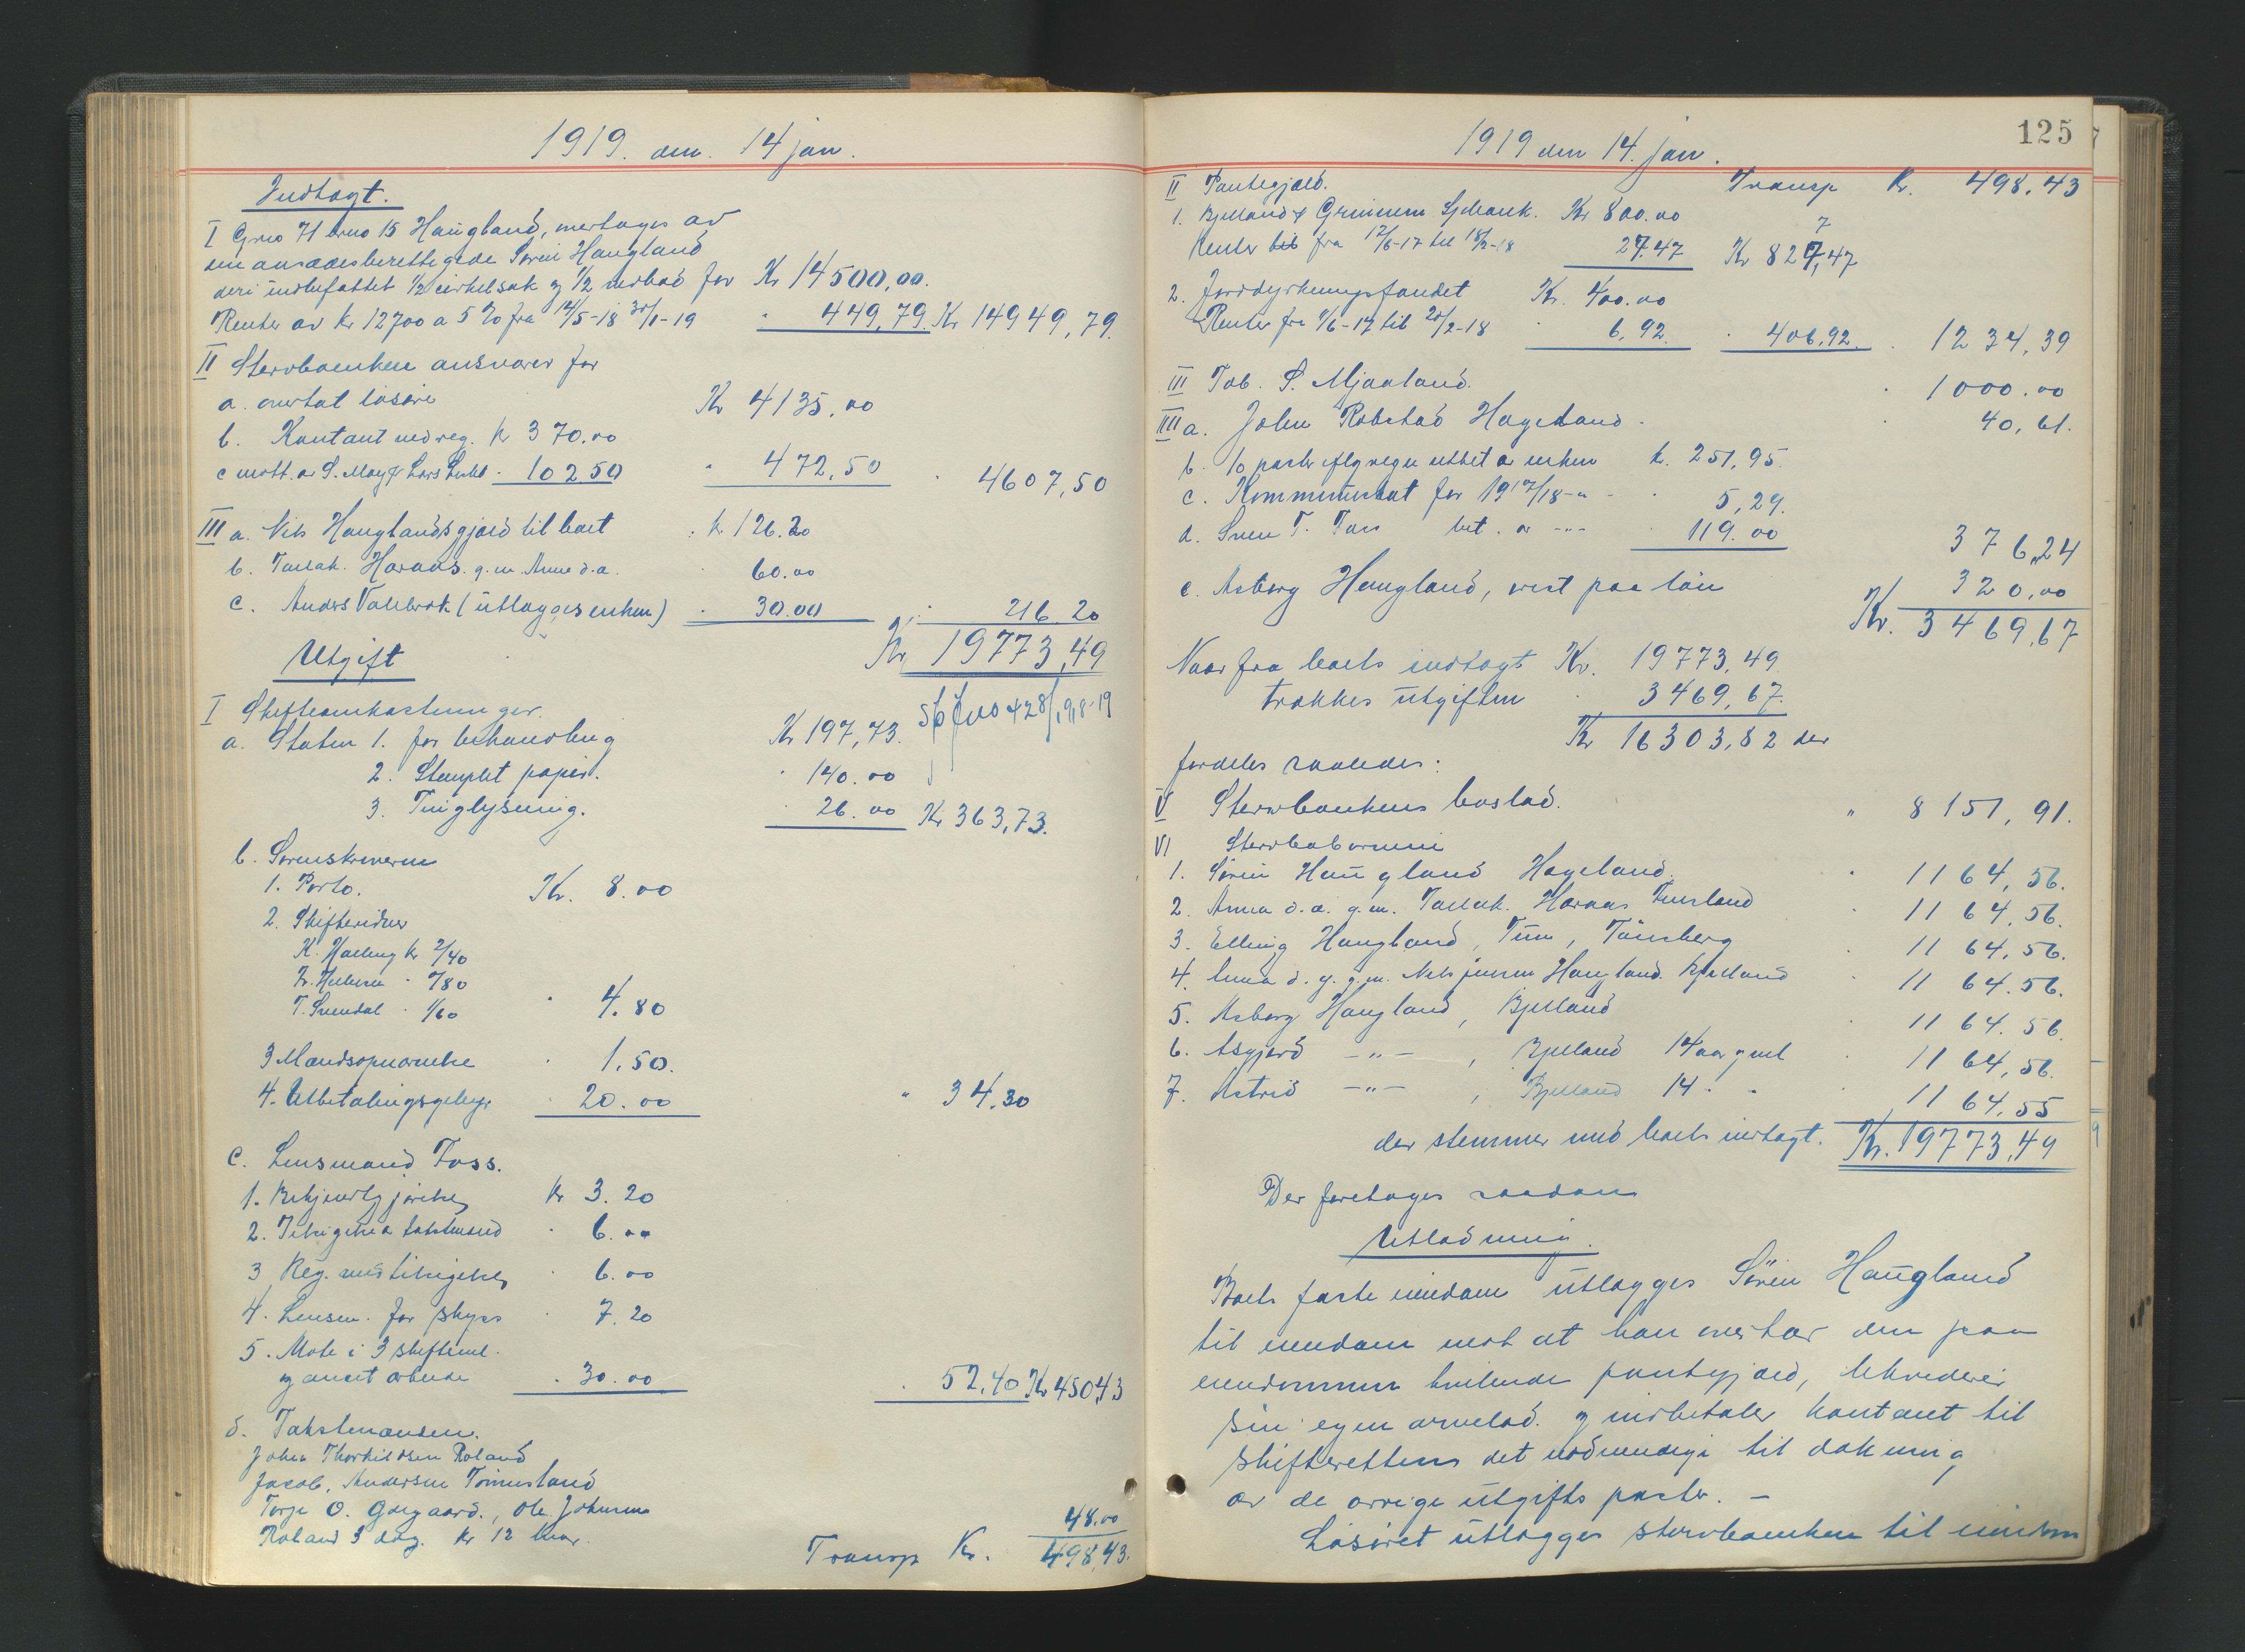 1919. den. 14 jan.
Indtægt.
I Grno 71 brno 15 Haugland, overtages av
den aasædesberettigede Søren Haugland
deri indbefattet 1/2 cirkelsak og 1/2 for Kr 14500,00.
Renter av kr 12700 a 5 % fra 14/5-18 31/1-19 " 449,79. Kr 14949,79.
II Stervboenken ansvarer for
a. overtat løsøre Kr 4135,00
b. Kontant ved reg. kr 370.00
c mott. av S. " 102.50 " 472,50 " 4607,50
III a. Nils Hauglands gjæld til boet " kr 126.20
b. Tarlak. Haraas. g.m. Anne d.æ. " 60.00
c. Anders Vallebrok (utlægges enken) " 30.00 " 216.20
Kr 19773,49
Utgift
I Skifteomkostninger.
a. Staten 1. for behandling Kr 197,73.
2. Stemplet papir. " 140.00
3. Tinglysning. " 26.00 Kr 363,73.
b. Sorenskriveren
1. Porto. Kr. 8.00
2. Skiftevidner
K. kr 2/40
" /80
T. Svendal " 1/60 " 4.80
3 Mandsopnævnelse " 1,50.
4. Utbetalingsgebyr " 20.00 " 34.30
c. Lensmand Foss.
1. Bekjendtgjørelse Kr 3.20
2. Tilsigelse a takstmænd " 6.00
3 Reg. med tilsigelse " 6.00
4. Lensm. for skyss " 7.20
5. Møte i 3 skiftesml.
og andet arbeide " 30.00 " 52,40 Kr 450,43
d. Takstmænden.
Johan Thorkildsen Roland
Jacob. Andersen
Torje O. ., Ole Johnsen
Roland 3 dag. kr 12 hver. 48.00
Transp Kr. 498,43.
125
1919 den 14. jan.
II Pantegjæld. Transp Kr. 498,43
1. Bjelland & Grinnem Spbank. Kr 800.00
Renter til fra 12/6-17 til 18/2-18 27.47 Kr 827,47
2. Jorddyrkningsfondet Kr. 400.00
Renter fra 1/6-17 til 20/2-18 " 6,92. " 406,92. " 1234,39
III Tob. S. Mjaaland. " 1000.00
IIII a. John Robstad Hægeland. " 40,61.
b. 10 poster iflg regn utbet av enken kr. 251,95.
c. Kommuneskat for 1917/18 -"- " 5,29.
d. Sven T. Foss bet. av -"- " 119.00 376,24
e. Asborg Haugland, rest paa løn 320,00
Kr. 3469,67
Naar fra boets indtægt Kr. 19773,49
trækkes utgiften " 3469,67.
Kr 16303,82 der
fordeles saaledes:
V Stervboenkens boslod. " 8151,91.
VI Stervbobørnene
1. Søren Haugland Hægeland. " 1164,56.
2. Anna d.æ. g.m. Tarlak. Haraas Finsland " 1164,56.
3. Elling Haugland, Tim, Tønsberg " 1164,56.
4. Anna d.y. g.m. Nils Jensen Haugland. Bjelland " 1164.56.
5. Asborg Haugland, Bjelland " 1164.56
6. Asgjerd -"-, Bjelland 14 aar gml " 1164,56.
7. Astrid -"-, Bjelland 14 " " " 1164,55
der stemmer med boets indtægt. Kr. 19773,49
Der foretages saadan
Utlodning.
Boets faste eiendom utlægges Søren Haugland
til eiendom mot at han overtar den paa
eiendommen hvilende pantegjæld, likviderer
sin egen arvelod. og indbetaler kontant til
skifteretten det nødvendige til dækning
av de øvrige utgifts poster. —
Løsøret utlægges stervboenken til eiendom